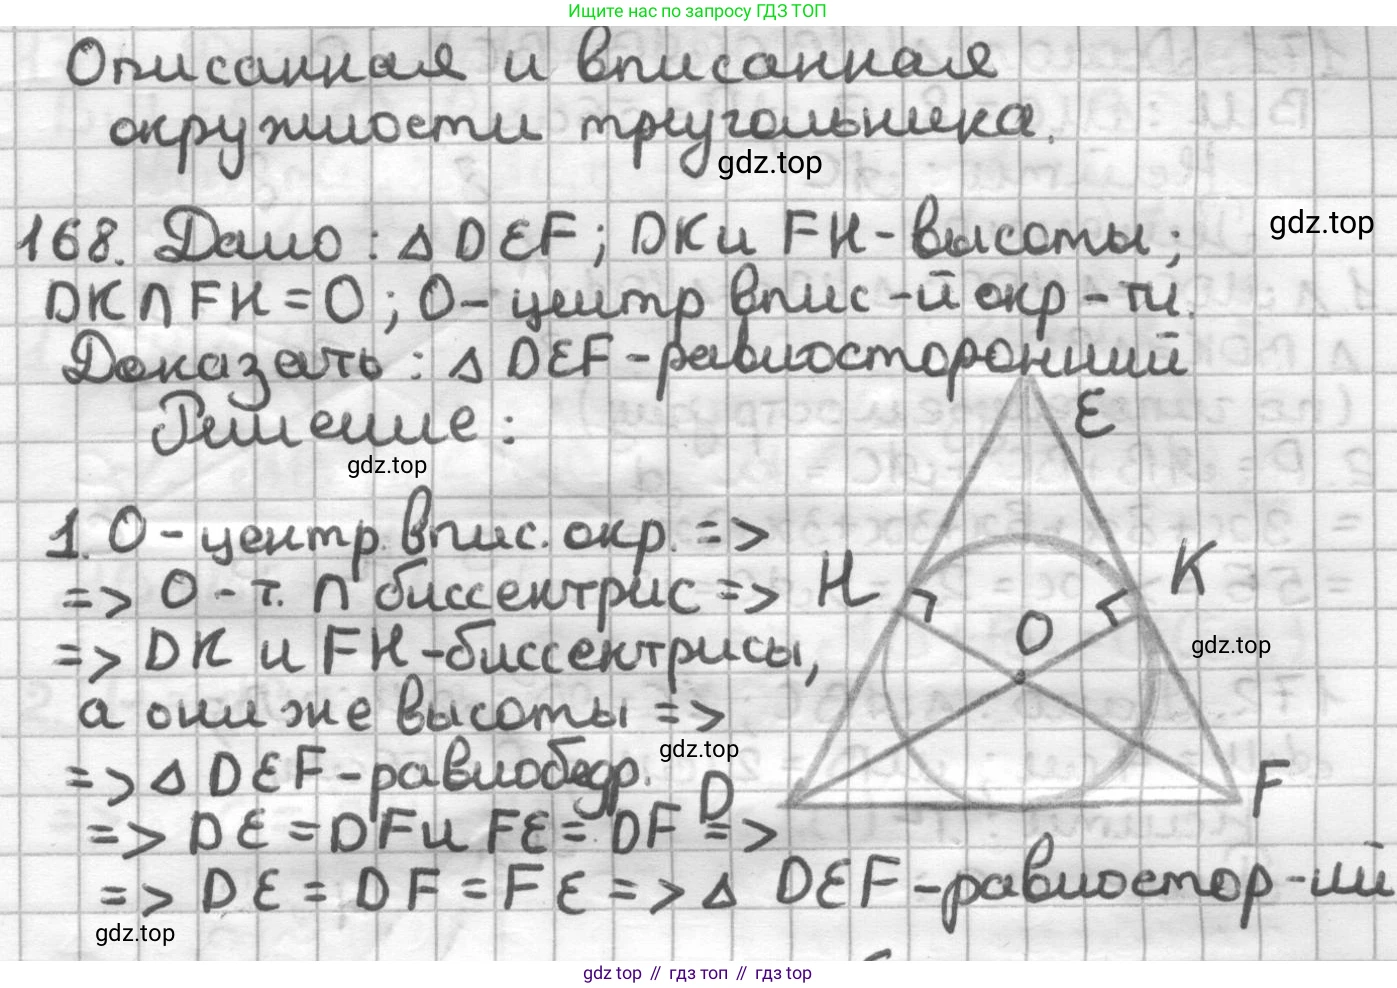 Ищите нас по запросу ГДЗ ТОП
Описанная и вписанная
окружности треугольника.
gdz.top
168. Дано: △ DEF; DK и FH - высоты;
gdz.top
DK ∩ FH = O; O - центр впис-й окр-ти.
Доказать: △ DEF - равносторонний
Решение:
E
gdz.top
1. O - центр впис. окр. =>
=> O - т. ∩ биссектрис =>
H
K
O
=> DK и FH - биссектрисы,
gdz.top
а они же высоты =>
gdz.top
=> △ DEF - равнобедр.
D
F
=> DE = DF и FE = DF =>
=> DE = DF = FE => △ DEF - равностор-ий
gdz.top
gdz top // гдз топ // гдз top